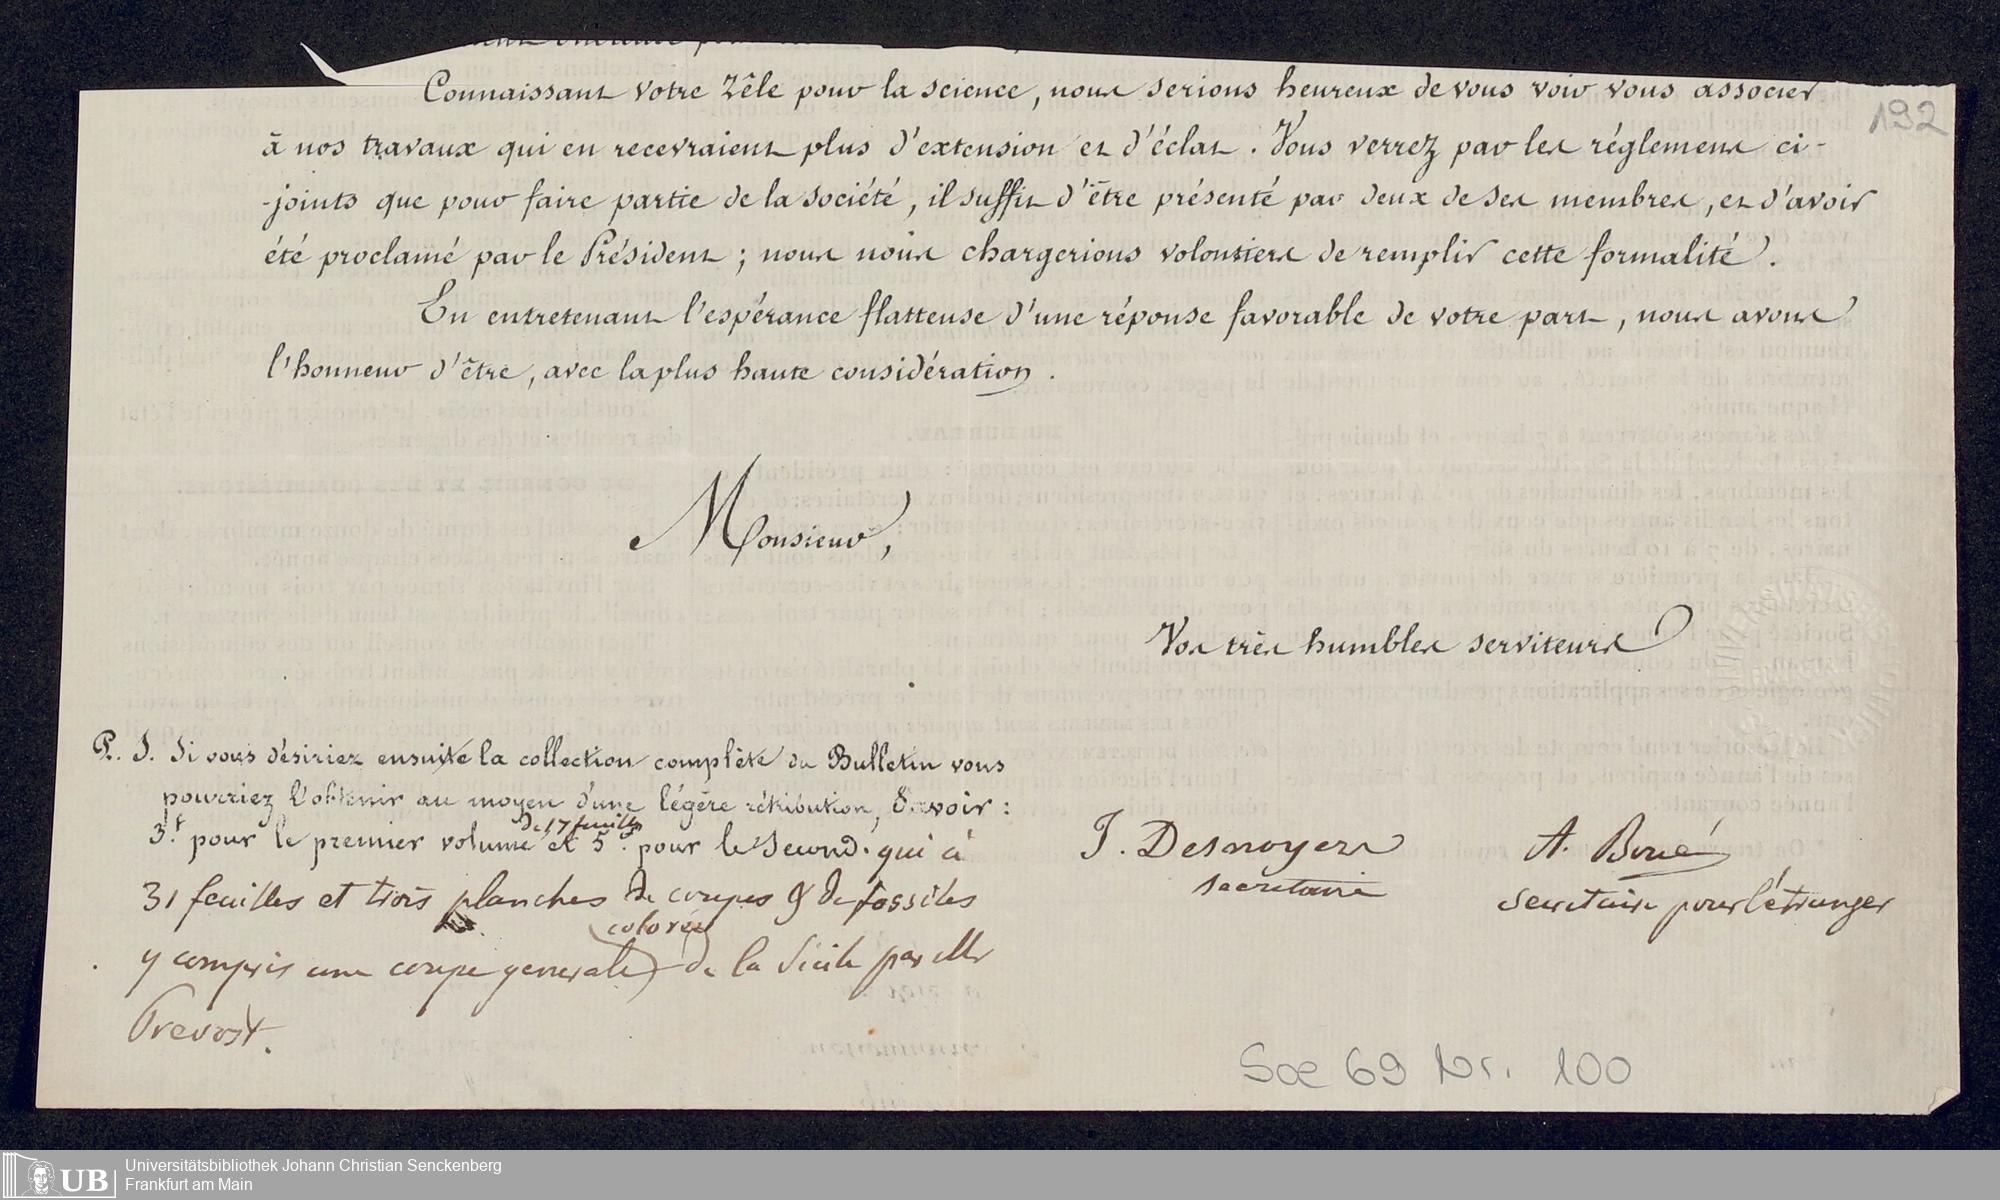 192
Connaissant votre zêle pour la science, nous serions heureux de vous voir vous associer
à nos travaux qui en recevraient plus d'extension et d'éclat. Vous verrez par les réglemens ci-
-joints que pour faire partie de la société, il suffit d'être présenté par deux de ses membres, et d'avoir
été proclamé par le Président ; nous nous chargerions volontiers de remplir cette formalité.
En entretenant l'espérance flatteuse d'une réponse favorable de votre part, nous avons
l'honneur d'être, avec la plus haute considération.
Monsieur,
Vos très humbles serviteurs
P. S. Si vous désiriez ensuite la collection complète du Bulletin vous
pourriez l'obtenir au moyen d'une légère rétribution, Savoir :
de 17 feuilles
3f. pour le premier volume et 5f. pour le Second. qui a
31 feuilles et trois planches de coupes & de fossiles
colorée
y compris une coupe generale de la Sicile par Mr
Prevost.
J. Desnoyers
secretaire
A. Boué
Secretaire pour l'étranger
Soe 69 Nr. 100
UB
Universitätsbibliothek Johann Christian Senckenberg
Frankfurt am Main